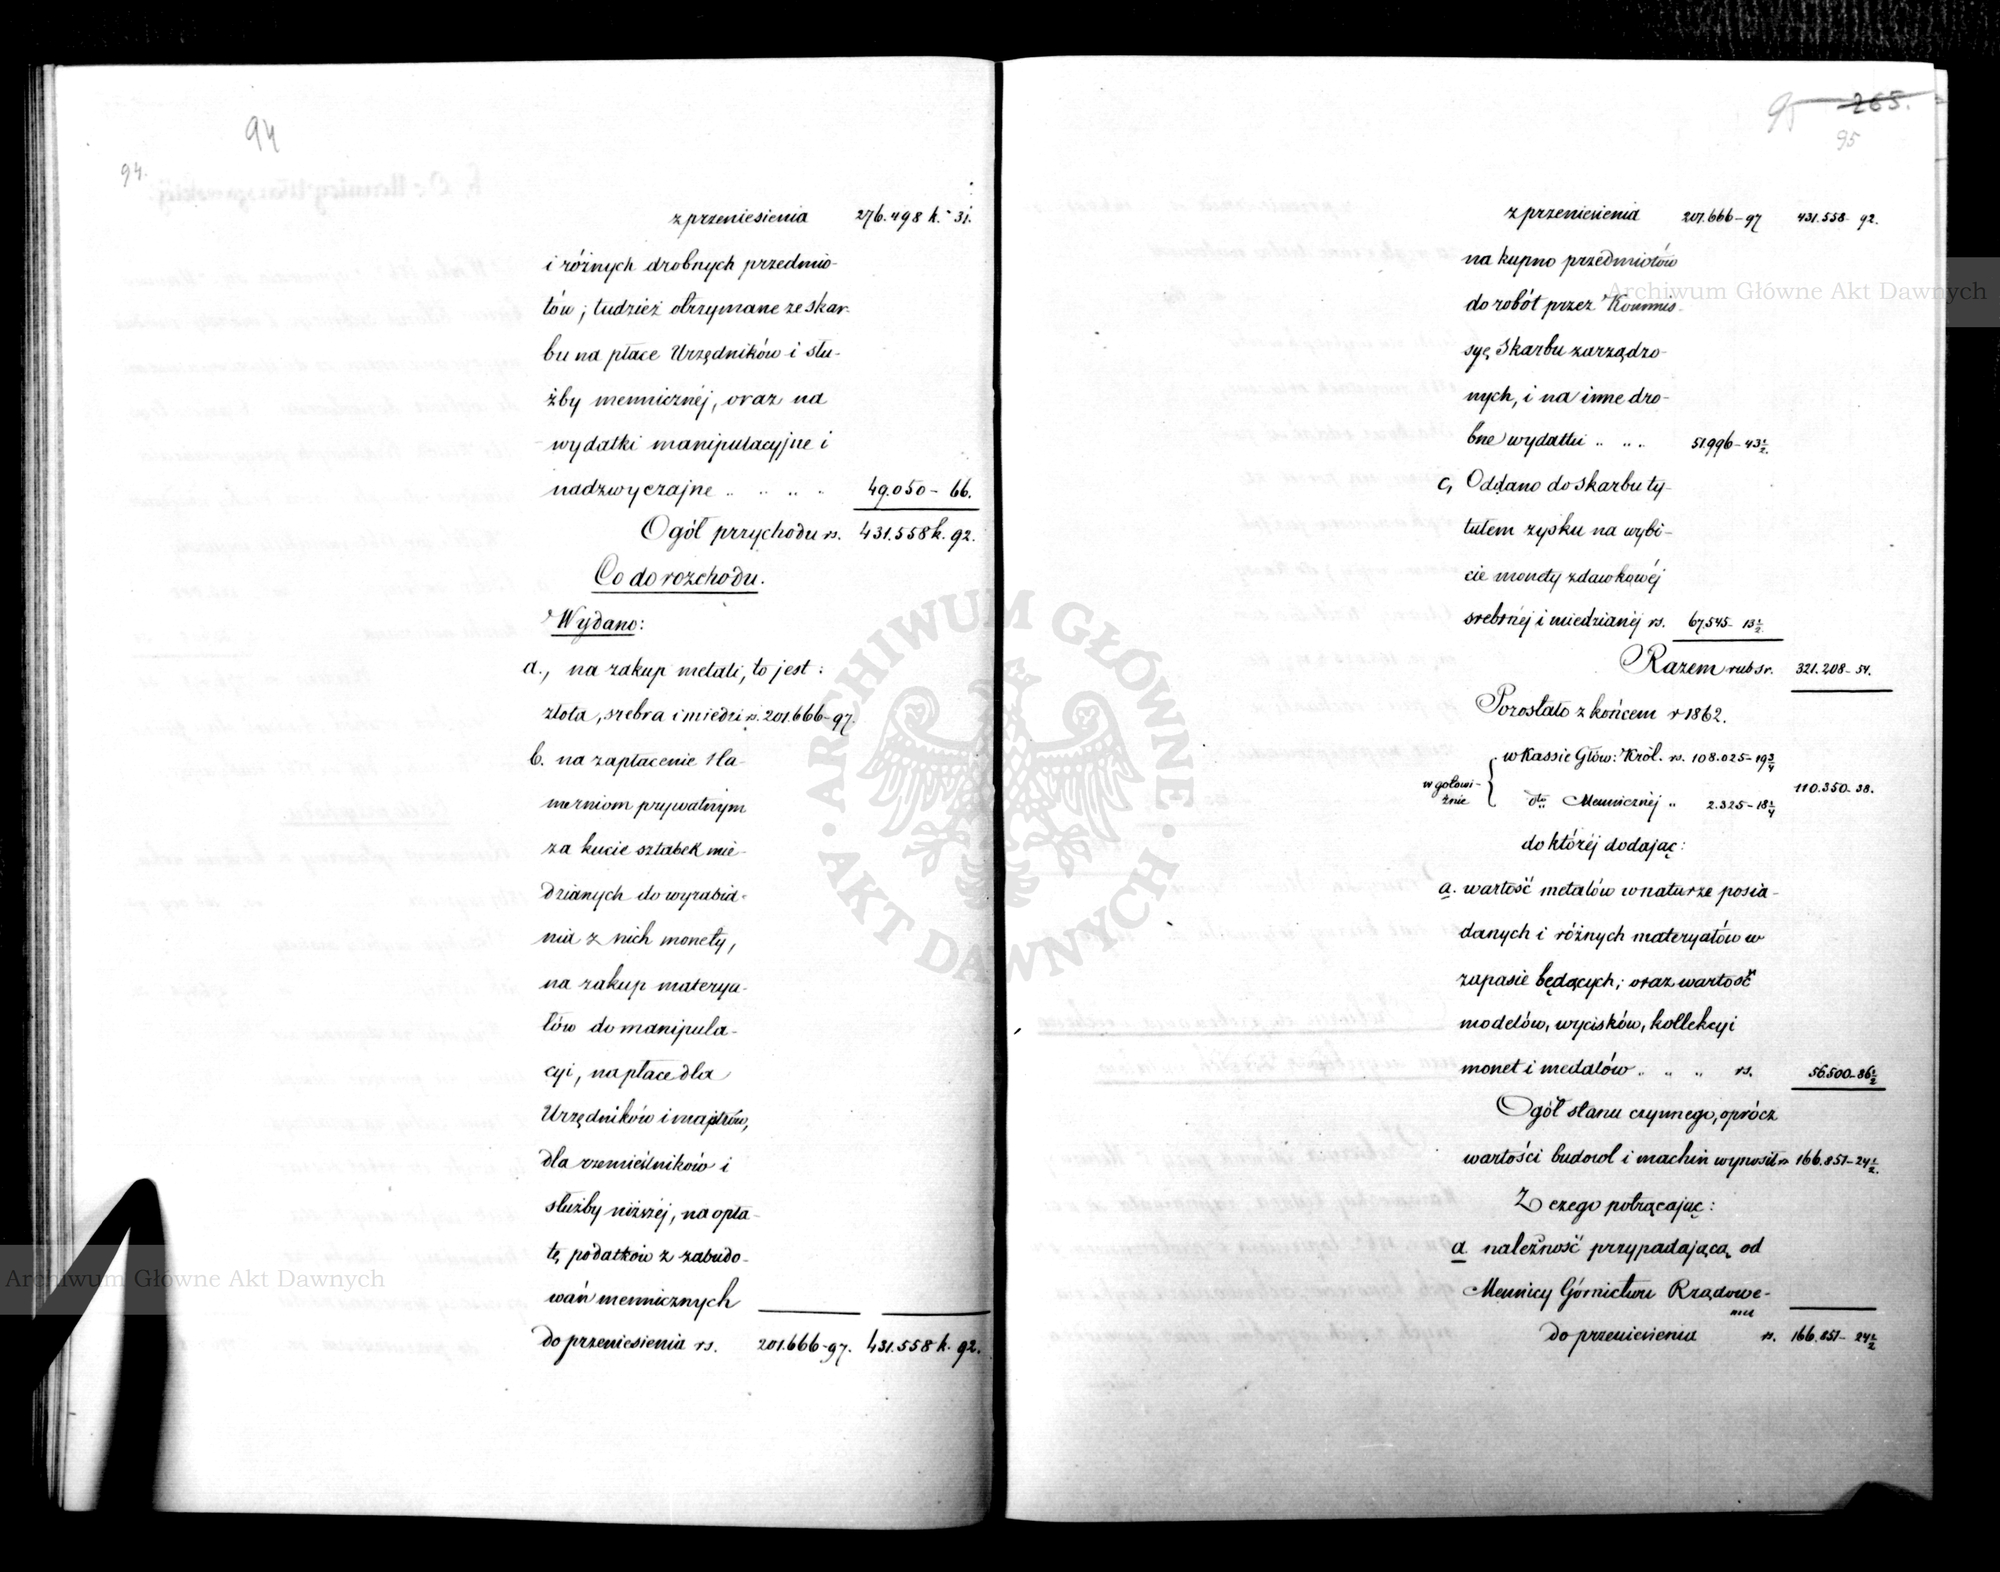 94
94.
z przeniesienia 276.498 k. 31.
i różnych drobnych przedmio-
tów; tudzież otrzymane ze skar-
bu na płace Urzędników i słu-
żby mennicznéj, oraz na
wydatki manipulacyjne i
nadzwyczajne „ „ „ „ 49.050 - 66.
Ogół przychodu rs. 431.558 k. 92.
Co do rozchodu.
Wydano:
a., na zakup metali, to jest:
złota, srebra i miedzi rs. 201.666-97.
b. na zapłacenie Ha-
merniom prywatnym
za kucie sztabek mie-
dzianych do wyrabia-
nia z nich monety,
na zakup materya-
łów do manipula-
cyi, na płace dla
Urzędników i majstrów,
dla rzemieślników i
służby niższéj, na opła-
tę podatków z zabudo-
wań mennicznych
do przeniesienia rs. 201.666-97. 431.558 k. 92.
95 265.
95
z przeniesienia 201.666-97 431.558 92.
na kupno przedmiotów
do robót przez Kommis-
syę Skarbu zarządzo-
nych, i na inne dro-
bne wydatki „ „ „ 51.996-43 1/2.
c, Oddano do skarbu ty-
tułem zysku na wybi-
cie monety zdawkowéj
srebrnéj i miedzianéj rs. 67.545- 13 1/2.
Razem rub sr. 321.208-54.
Pozostało z końcem r 1862.
w gotowi-
źnie
w Kassie Głów: Król. rs. 108.025-19 3/4
dto Mennicznéj „ 2.325-18 1/4
110.350-38.
do któréj dodając:
a. wartość metalów w naturze posia-
danych i różnych materyałów w
zapasie będących; oraz wartość
modelów, wycisków, kollekcyi
monet i medalów „ „ „ rs. 56.500-86 1/2
Ogół stanu czynnego, oprócz
wartości budowl i machin wynosił rs 166.851-24 1/2.
Z czego potrącając:
a. należność przypadającą od
Mennicy Górnictwu Rządowe-
mu
do przeniesienia rs. 166.851-24 1/2
ARCHIWUM GŁÓWNE
AKT DAWNYCH
Archiwum Główne Akt Dawnych
Archiwum Główne Akt Dawnych